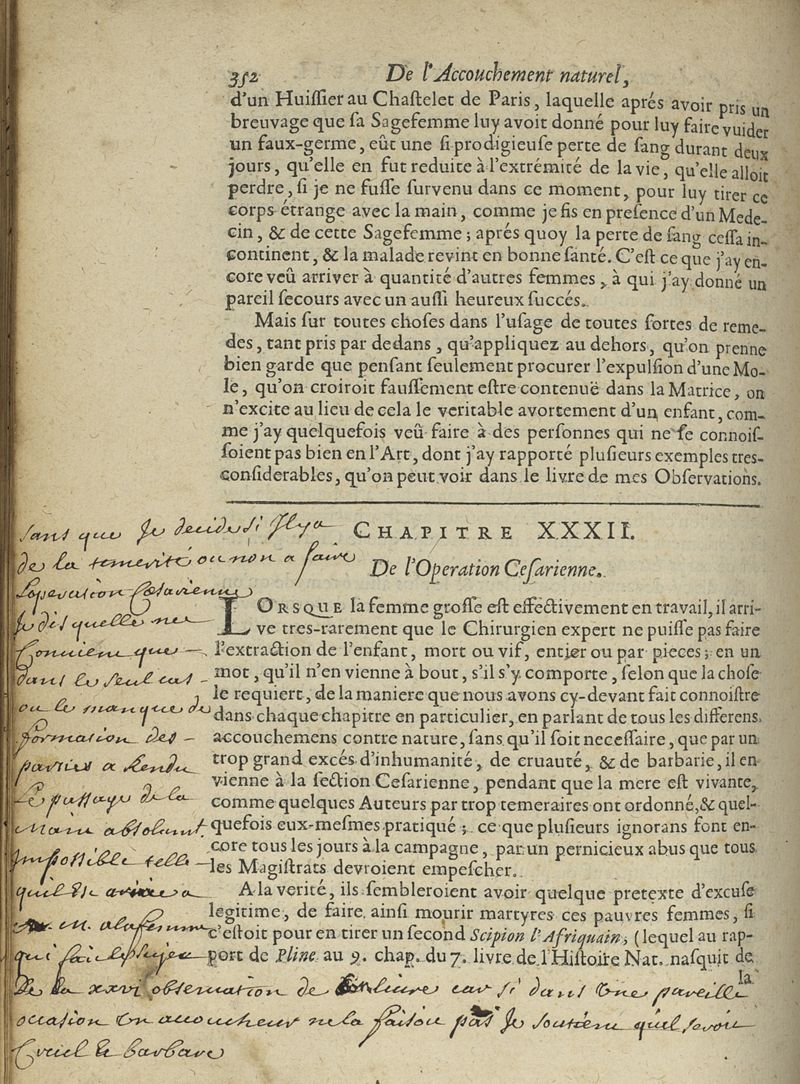 352 De l'Accouchement naturel,
d'un Huiſſier au Chaſtelet de Paris, laquelle aprés avoir pris un
breuvage que ſa Sagefemme luy avoit donné pour luy faire vuider
un faux-germe, eût une ſi prodigieuſe perte de ſang durant deux
jours, qu'elle en fut reduite à l'extrémité de la vie, qu'elle alloit
perdre, ſi je ne fuſſe ſurvenu dans ce moment, pour luy tirer ce
corps étrange avec la main, comme je fis en preſence d'un Mede-
cin, & de cette Sagefemme; aprés quoy la perte de ſang ceſſa in-
continent, & la malade revint en bonne ſanté. C'eſt ce que j'ay en-
core veû arriver à quantité d'autres femmes, à qui j'ay donné un
pareil ſecours avec un auſſi heureux ſuccés.
Mais ſur toutes choſes dans l'uſage de toutes ſortes de reme-
des, tant pris par dedans, qu'appliquez au dehors, qu'on prenne
bien garde que penſant ſeulement procurer l'expulſion d'une Mo-
le, qu'on croiroit fauſſement eſtre contenuë dans la Matrice, on
n'excite au lieu de cela le veritable avortement d'un enfant, com-
me j'ay quelquefois veû faire à des perſonnes qui ne ſe connoiſ-
ſoient pas bien en l'Art, dont j'ay rapporté pluſieurs exemples tres-
conſiderables, qu'on peut voir dans le livre de mes Obſervations.
CHAPITRE XXXII.
De l'Operation Ceſarienne.
LORSQUE la femme groſſe eſt effectivement en travail, il arri-
ve tres-rarement que le Chirurgien expert ne puiſſe pas faire
l'extraction de l'enfant, mort ou vif, entier ou par pieces; en un
mot, qu'il n'en vienne à bout, s'il s'y comporte, ſelon que la choſe
le requiert, de la maniere que nous avons cy-devant fait connoiſtre
dans chaque chapitre en particulier, en parlant de tous les differens
accouchemens contre nature, ſans qu'il ſoit neceſſaire, que par un
trop grand excés d'inhumanité, de cruauté, & de barbarie, il en
vienne à la ſection Ceſarienne, pendant que la mere eſt vivante,
comme quelques Auteurs par trop temeraires ont ordonné, & quel-
quefois eux-meſmes pratiqué; ce que pluſieurs ignorans font en-
core tous les jours à la campagne, par un pernicieux abus que tous
les Magiſtrats devroient empeſcher.
A la verité, ils ſembleroient avoir quelque pretexte d'excuſe
legitime, de faire ainſi mourir martyres ces pauvres femmes, ſi
c'eſtoit pour en tirer un ſecond Scipion l'Afriquain, (lequel au rap-
port de Pline au 9. chap. du 7. livre de l'Hiſtoire Nat. naſquit de
la
sans que je decide s'il y a
de la temerité ou non a faire
l'operation
je dis quelle ne
convient que
dans le seul cas
ou le manque de
formation des
parties a rendu
le passage de la
main absolument
impossible telle
quil est arrivé a
de la xxvi observation de car si dans une pareille
occasion un accoucheur ne la faisoit pas je soutiens quil seroit
cruel & barbare